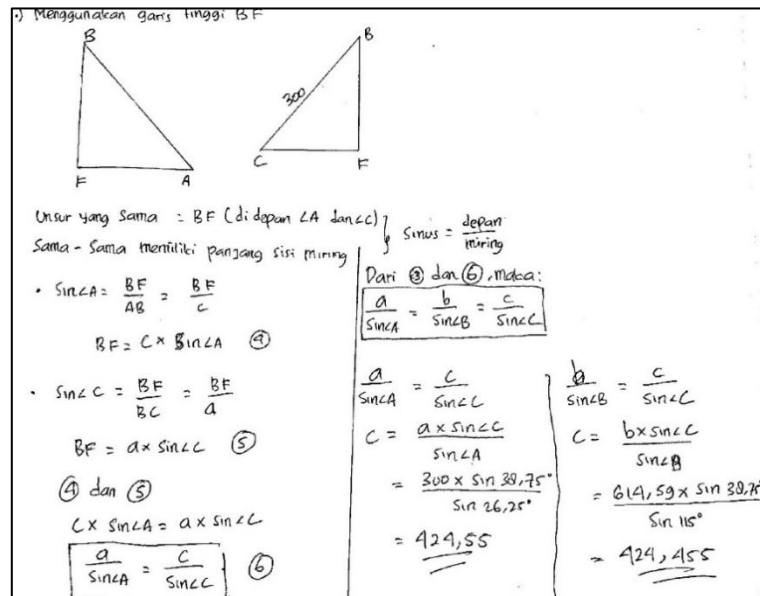 •) Menggunakan garis tinggi BF
B
F
A
B
300
C
F
Unsur yang sama = BF (di depan ∠A dan ∠C)
Sama - Sama memiliki panjang sisi miring
} Sinus = depan / miring
• Sin∠A = BF/AB = BF/c
BF = c × Sin∠A ④
• Sin∠C = BF/BC = BF/a
BF = a × Sin∠C ⑤
④ dan ⑤
c × Sin∠A = a × Sin∠C
a/Sin∠A = c/Sin∠C ⑥
Dari ③ dan ⑥, maka:
a/Sin∠A = b/Sin∠B = c/Sin∠C
a/Sin∠A = c/Sin∠C
C = a × Sin∠C / Sin∠A
= 300 × Sin 38,75° / Sin 26,25°
= 424,55
b/Sin∠B = c/Sin∠C
C = b × Sin∠C / Sin∠B
= 614,59 × Sin 38,75° / Sin 115°
= 424,455